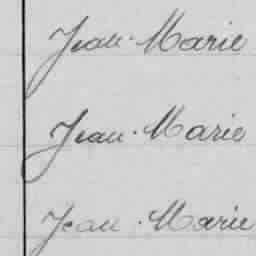 Jean-Marie
Jean-Marie
Jean-Marie